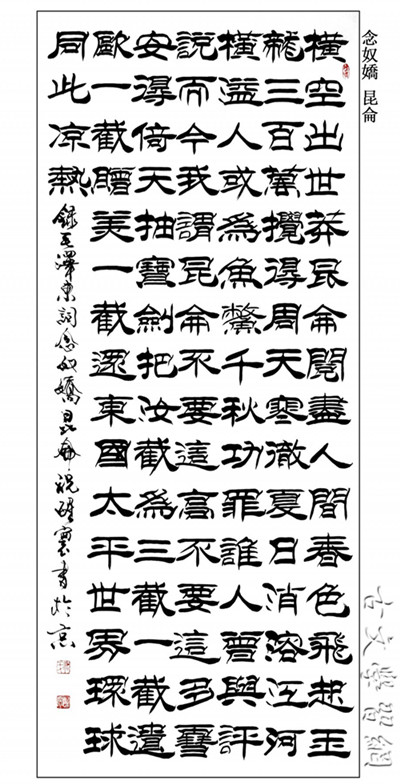 念奴嬌 昆侖
橫空出世莽昆侖閱盡人間春色飛起玉
龍三百萬攪得周天寒徹夏日消溶江河
橫溢人或為魚鱉千秋功罪誰人曾與評
說而今我謂昆侖不要這高不要這多雪
安得倚天抽寶劍把汝截為三截一截遺
歐一截贈美一截還東國太平世界環球
同此凉熱
錄毛澤東詞念奴嬌昆侖 祝寰書於京
古文學習網